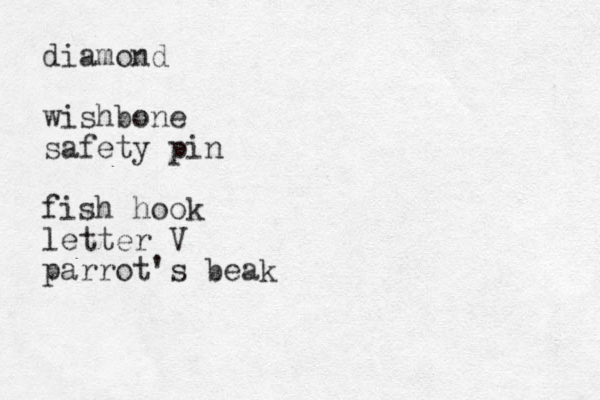 diamond
wishbone
safety pin
fish hook
letter V
parrot's beak